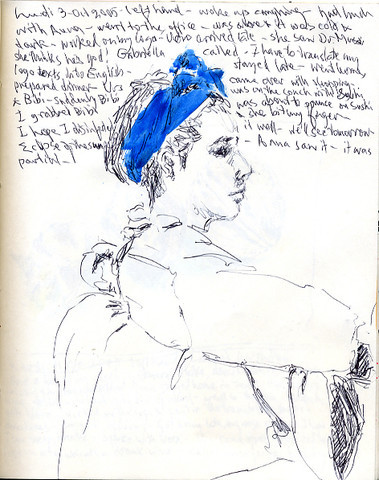 Lundi 3-Oct 2005- Left hand- woke up coughing- had lunch
with Anna- went to the office- was alone & it was cold &
dark- worked on big logo- arrived late- she saw Dr
she thinks has god! Gabriella called- I have to translate my
logo texts into English- stayed late- went home,
prepared dinner- came over with
& Bibi- suddenly Bibi was on the couch with Sushi
I grabbed Bibi was about to pounce on Sushi
& she bit my finger
I hope I disinfected it well- we'll see tomorrow-
Eclipse of the sun - Anna saw it- it was
partial-!